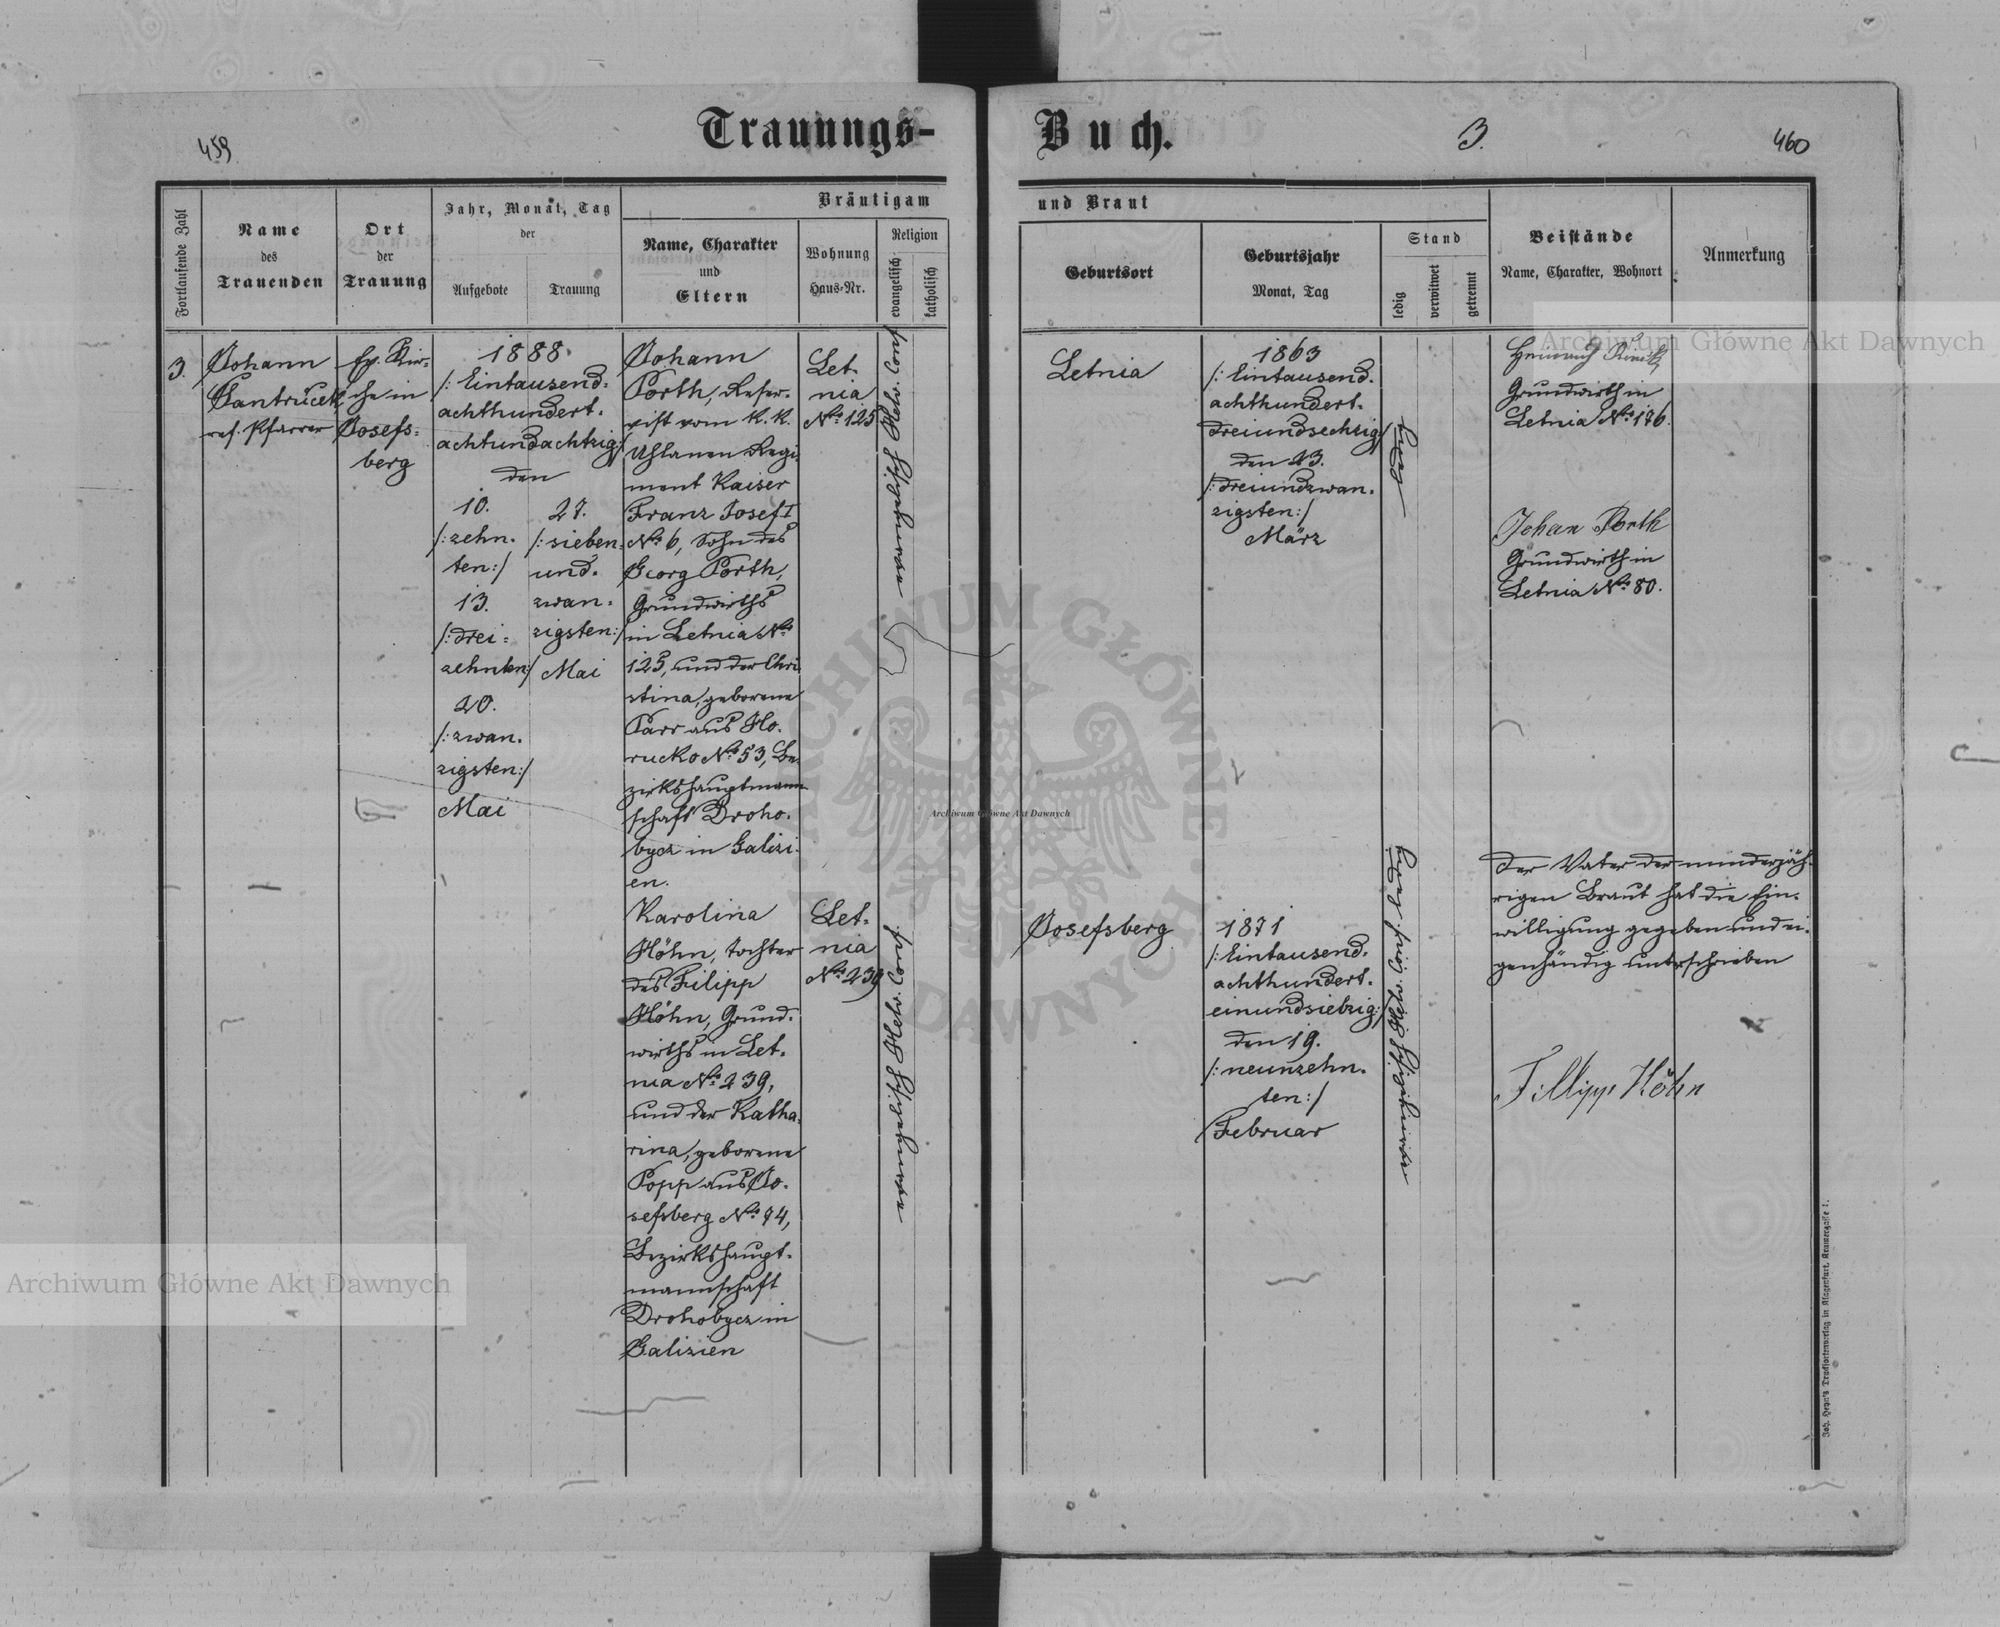 459
Trauungs-
Buch.
3.
460
Fortlaufende Zahl
Name
des
Trauenden
Ort
der
Trauung
Jahr, Monat, Tag
der
Aufgebote
Trauung
Bräutigam
Name, Charakter
und
Eltern
Wohnung
Haus-Nr.
Religion
evangelisch
katholisch
und Braut
Geburtsort
Geburtsjahr
Monat, Tag
Stand
ledig
verwitwet
getrennt
Beistände
Name, Charakter, Wohnort
Anmerkung
3.
Johann
ref. Pfarrer
Ev. Kir-
che in
Josefs-
berg
1888
/: Eintausend-
achthundert-
achtundachtzig:/
den
10.
/: zehn-
ten:/
13.
/: drei-
zehnten:/
20.
/: zwan-
zigsten:/
Mai
27.
/: sieben-
und-
zwan-
zigsten:/
Mai
Johann
Porth, Reser-
vist vom K. K.
Uhlanen Regi-
ment Kaiser
Franz Josef I
No 6, Sohn des
Georg Porth,
Grundwirths
in Letnia No
125, und der Chri
stina, geborene
Parr aus Ho-
rucko No 53, Be-
zirkshauptmann-
schaft Droho-
bycz in Galizi-
en.
Let-
nia
No 125
Letnia
1863
/: Eintausend-
achthundert-
dreiundsechzig:/
den 23.
/: dreiundzwan-
zigsten:/
März
ledig
Heinrich
Grundwirth in
Letnia No 176.
Johan Porth
Grundwirth in
Letnia No 80.
Karolina
Höhn, Tochter
des Filipp
Höhn, Grund-
wirths in Let-
nia No 239,
und der Katha-
rina, geborene
Popp aus Jo-
sefsberg No 74,
Bezirkshaupt-
mannschaft
Drohobycz in
Galizien
Let-
nia
No 239
Josefsberg
1871
/: Eintausend-
achthundert-
einundsiebzig:/
den 19.
/: neunzehn-
ten:/
Februar
ledig
Der Vater der minderjäh-
rigen Braut hat die Ein-
willigung gegeben und ei-
genhändig unterschrieben
Fillipp Höhn
Joh. Heyn's Drucksortenverlag in Klagenfurt, Kramergasse 1.
Archiwum Główne Akt Dawnych
Archiwum Główne Akt Dawnych
Archiwum Główne Akt Dawnych
ARCHIWUM GŁÓWNE AKT DAWNYCH